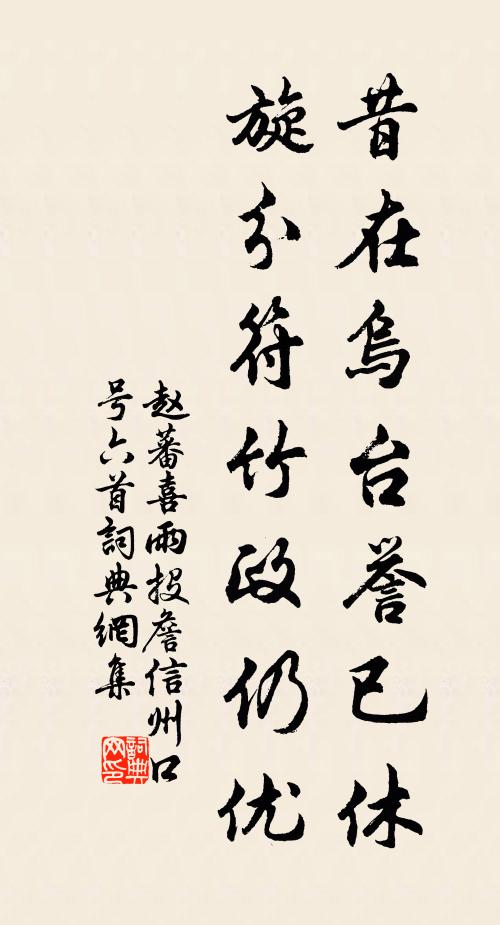 昔在烏台誉已休
旋分符竹政仍优
赵蕃喜雨投詹信州口
号六首詞典網集
詞典
网印